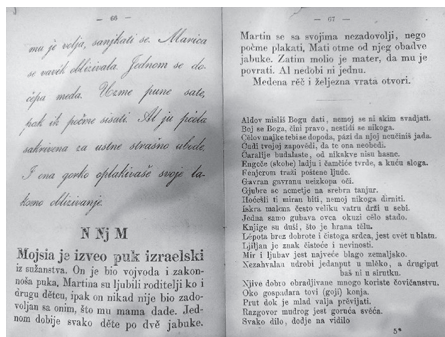 — 66 —
mu je volja, sanjkati se. Marica
se varvik oblizivala. Jednom se do-
čepa meda. Uzme pune sate,
pak ih počme sisati. Al ju pčela
sakrivena za ustne strašno ubode.
I ona gorko oplakivaše svoje la-
komo oblizivanje.
N Nj M
Mojsia je izveo puk izraelski
iz sužanstva. On je bio vojvoda i zakon-
noša puka, Martina su ljubili roditelji ko i
drugu dětcu, ipak on nikad nije bio zado-
voljan sa onim, što mu mama dade. Jed-
nom dobije svako děte po dvě jabuke.
— 67 —
Martin se sa svojima nezadovolji, nego
počme plakati, Mati otme od njeg obadvě
jabuke. Zatim molio je mater, da mu je
povrati. Al nedobi ni jednu.
Medena rěč i željezna vrata otvori.
Aldov mislii Bogu dati, nemoj se ni skim svadjati.
Boj se Boga, čini pravo, nestidi se nikoga.
Čělov majke tebi se dopada, pazi da njoj neučiniš jada.
Čudi tvojoj zapovědi, da te ona neobedi.
Čaralije budalaste, od nikakve nisu hasne.
Engeće (škole) lalju i žamčiće tvrde, a kuću sloga.
Fenjerom traži poštene ljude.
Gavran gavranu neizkopa oči.
Gjubre se nemetje na srebrn tanjur.
Hoćeš li ti miran biti, nemoj nikoga dirniti.
Iskra malena često veliku vatru drži u sebi.
Jedna samo gubava ovca okuži cělo stado.
Knjige su duši, što je hrana tělu.
Lěpota brez dobrote i čistoga srdca, jest cvět u blatu.
Ljiljan je znak čistoće i nevinosti.
Mir i ljubav jest najveće blago zemaljsko.
Nezahvalan udrobi jedanput u mlěko, a drugiput
baš ni u sirutku.
Njive dobro obradjivane mnogo koriste čovičanstvu.
Oko gospodara tovi (goji) konja.
Prut dok je mlad valja prěvijati.
Razgovor mudrog jest goruća svěća.
Svako dilo, dodje na vidilo
5*